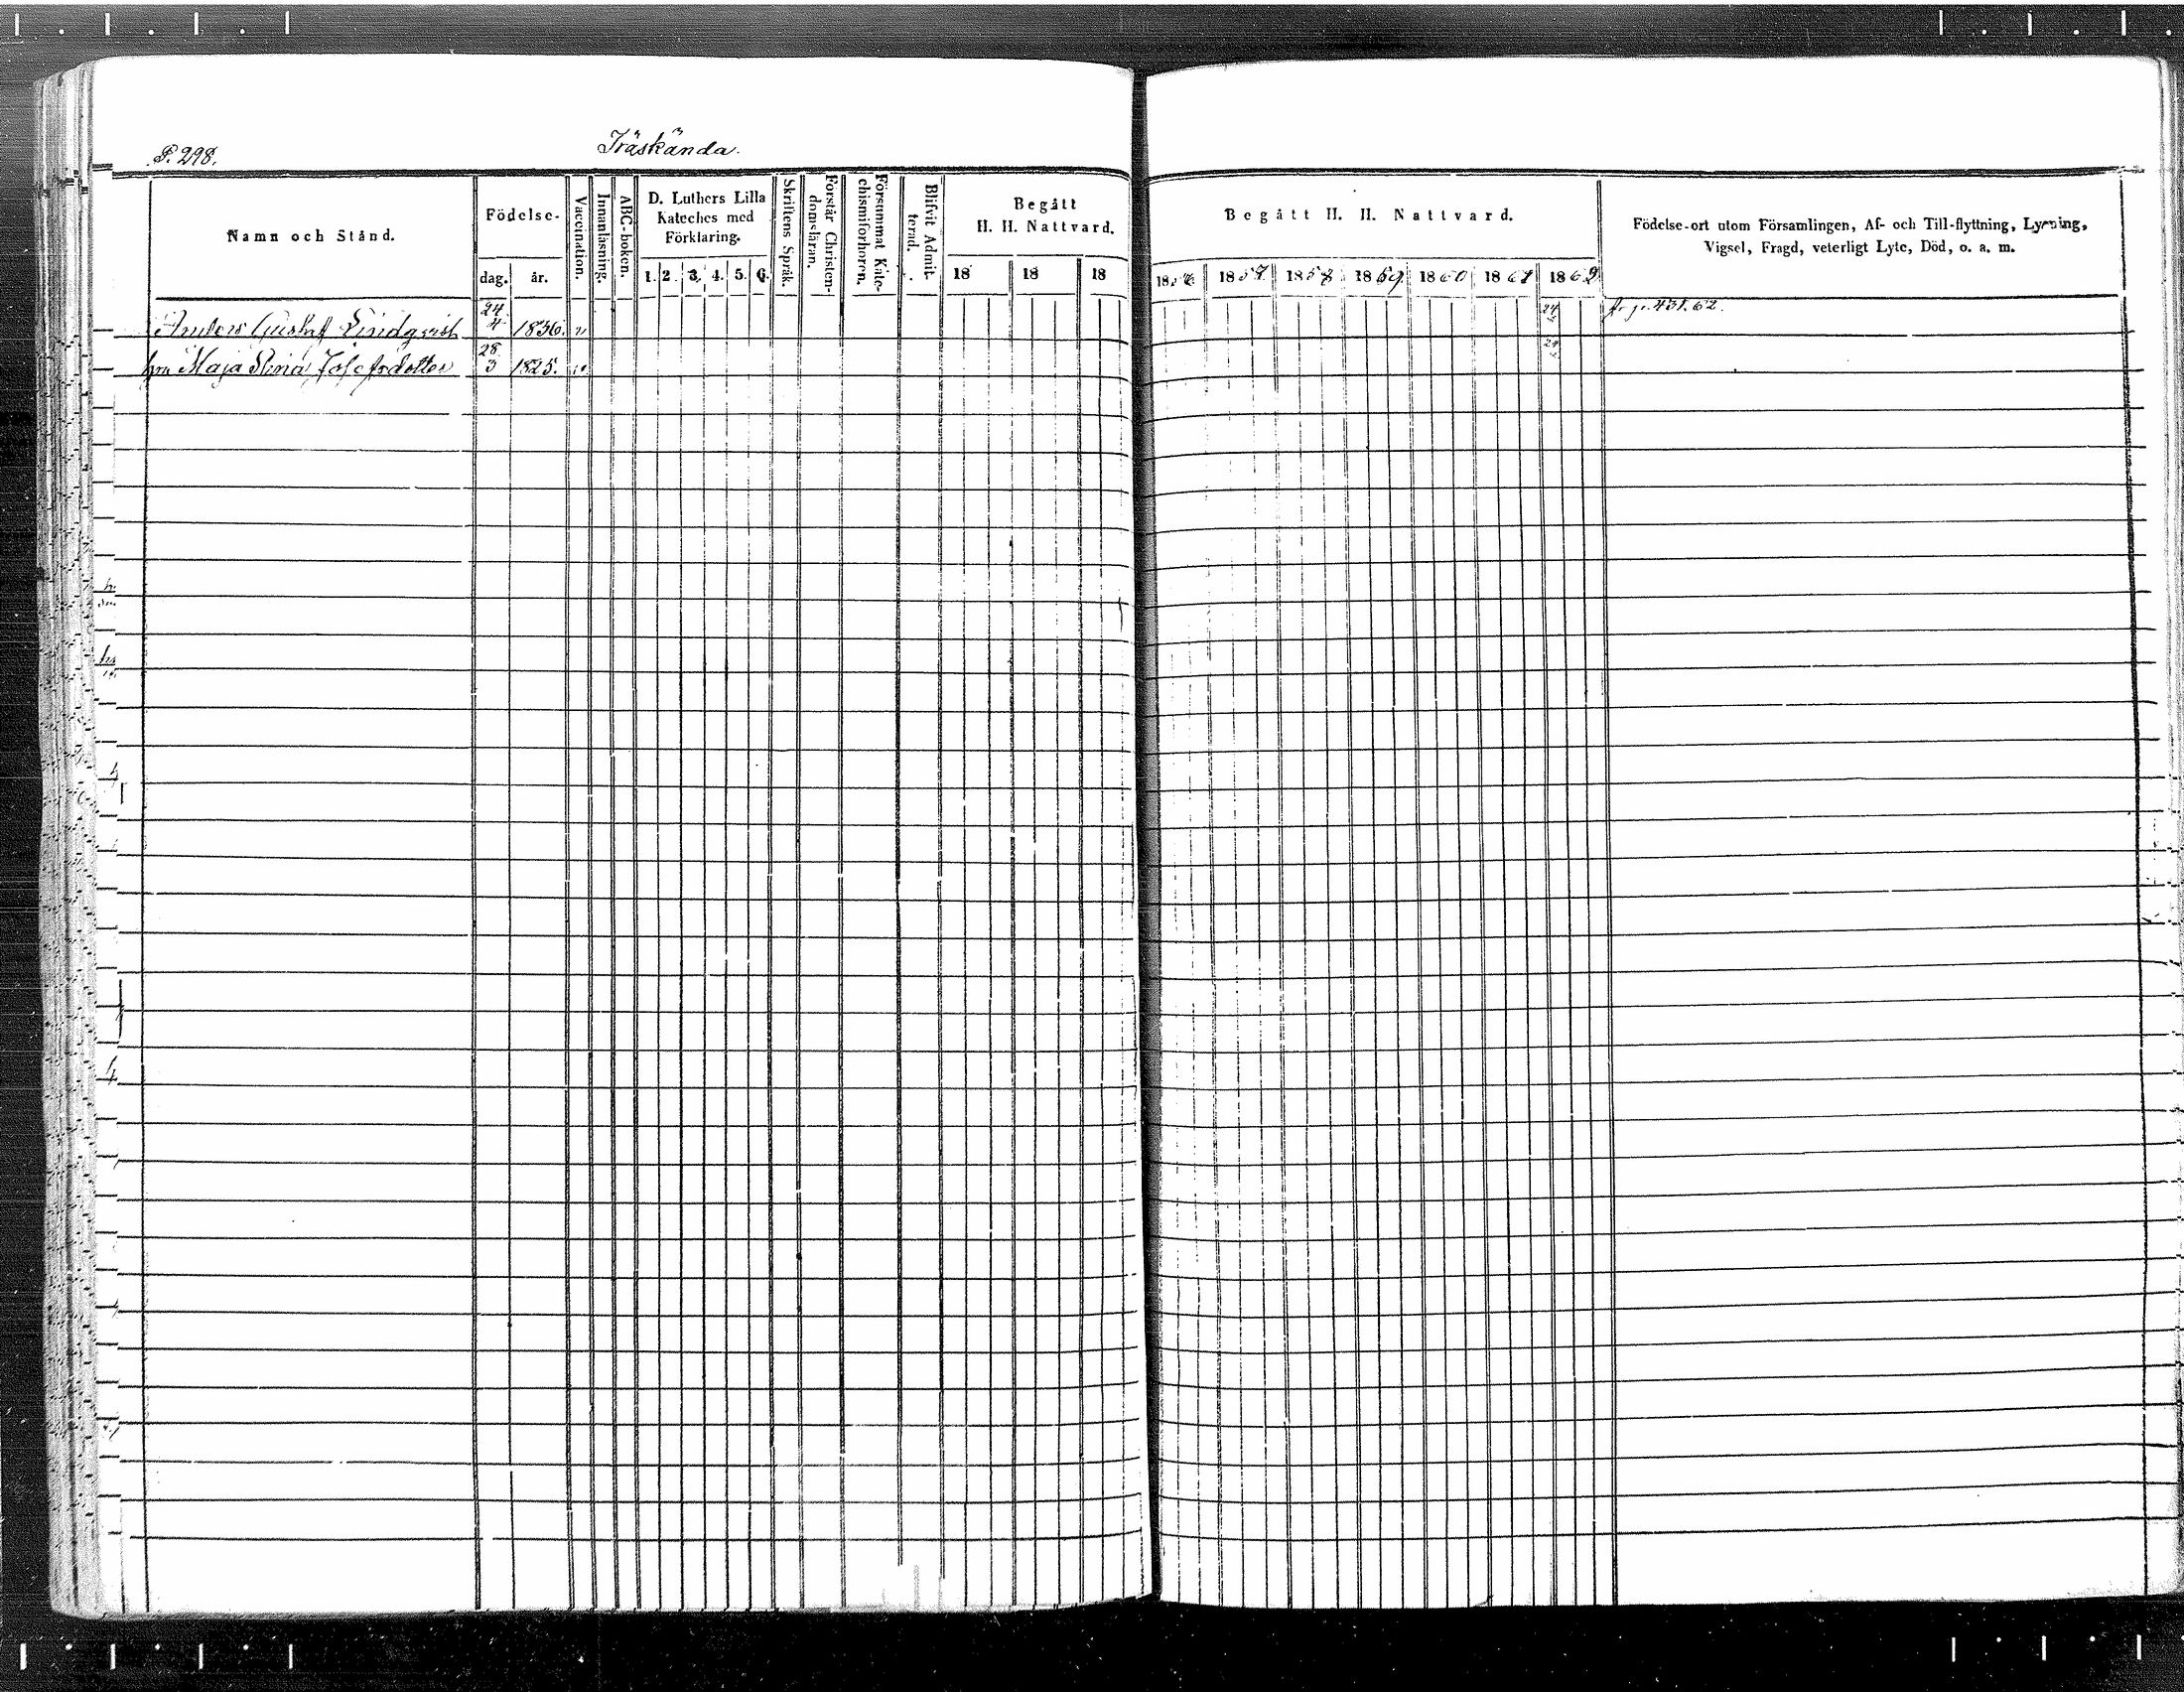 P. 298.
Träskända.
Namn och Stånd.
Födelse-
dag.
år.
Vaccination.
Innanläsning.
ABC-boken.
D. Luthers Lilla
Kateches med
Förklaring.
1. 2. 3. 4. 5. 6.
Skriftens Språk.
Förstår Christen-
domsläran.
Försummat Kate-
chismiförhören.
Blifvit Admit-
terad.
Begått
H. H. Nattvard.
18 18 18
Begått H. H. Nattvard.
1856 1857 1858 1859 1860 1861 1862
Födelse-ort utom Församlingen, Af- och Till-flyttning, Lysning,
Vigsel, Frägd, veterligt Lyte, Död, o. a. m.
Anders Gustaf Lindqvist 24/4 1836. v fr. p. 431. 62.
hru Maja Stina Josefsdotter 28/3 1825.